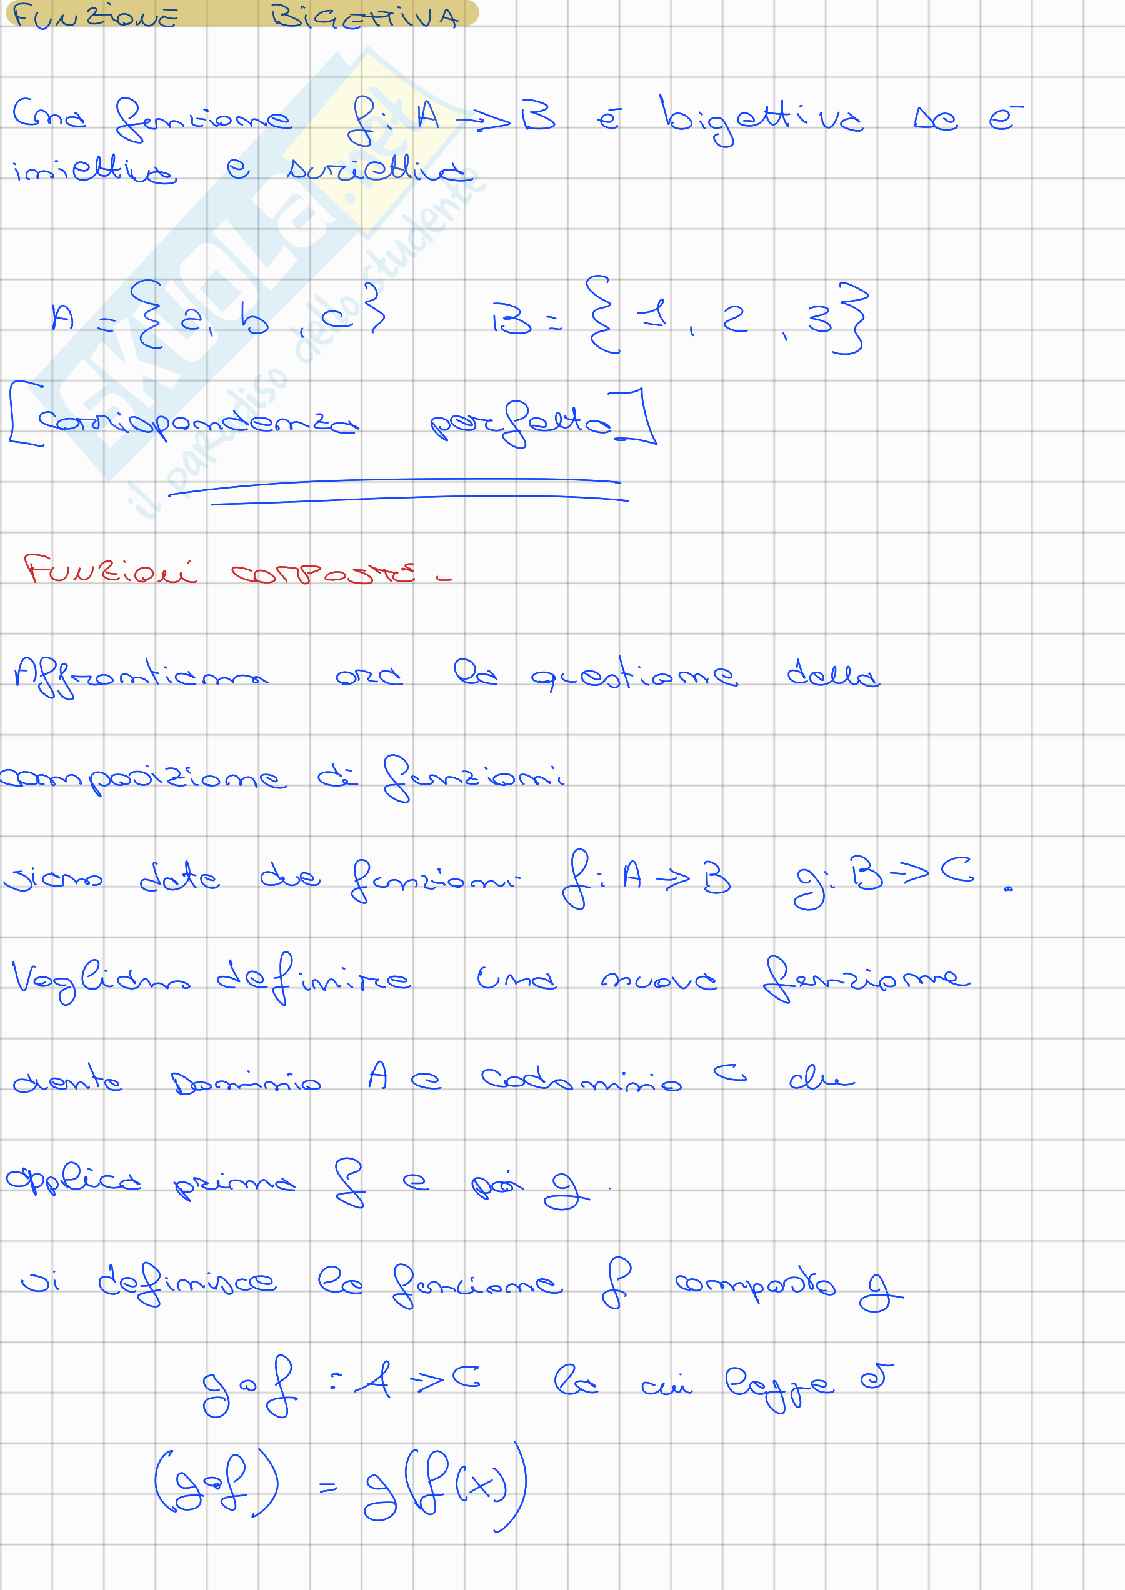 FUNZIONE BIGETTIVA
Una funzione f: A → B è bigettiva se è
iniettiva e suriettiva
A = {a, b, c} B = {1, 2, 3}
[corrispondenza perfetta]
Funzioni composte -
Affrontiamo ora la questione della
composizione di funzioni
siano date due funzioni f: A → B g: B → C.
Vogliamo definire una nuova funzione
avente Dominio A e codominio C che
applica prima f e poi g.
si definisce la funzione f composto g
g∘f : A → C la cui legge è
(g∘f) = g(f(x))
SKUOLA.net
il paradiso dello studente